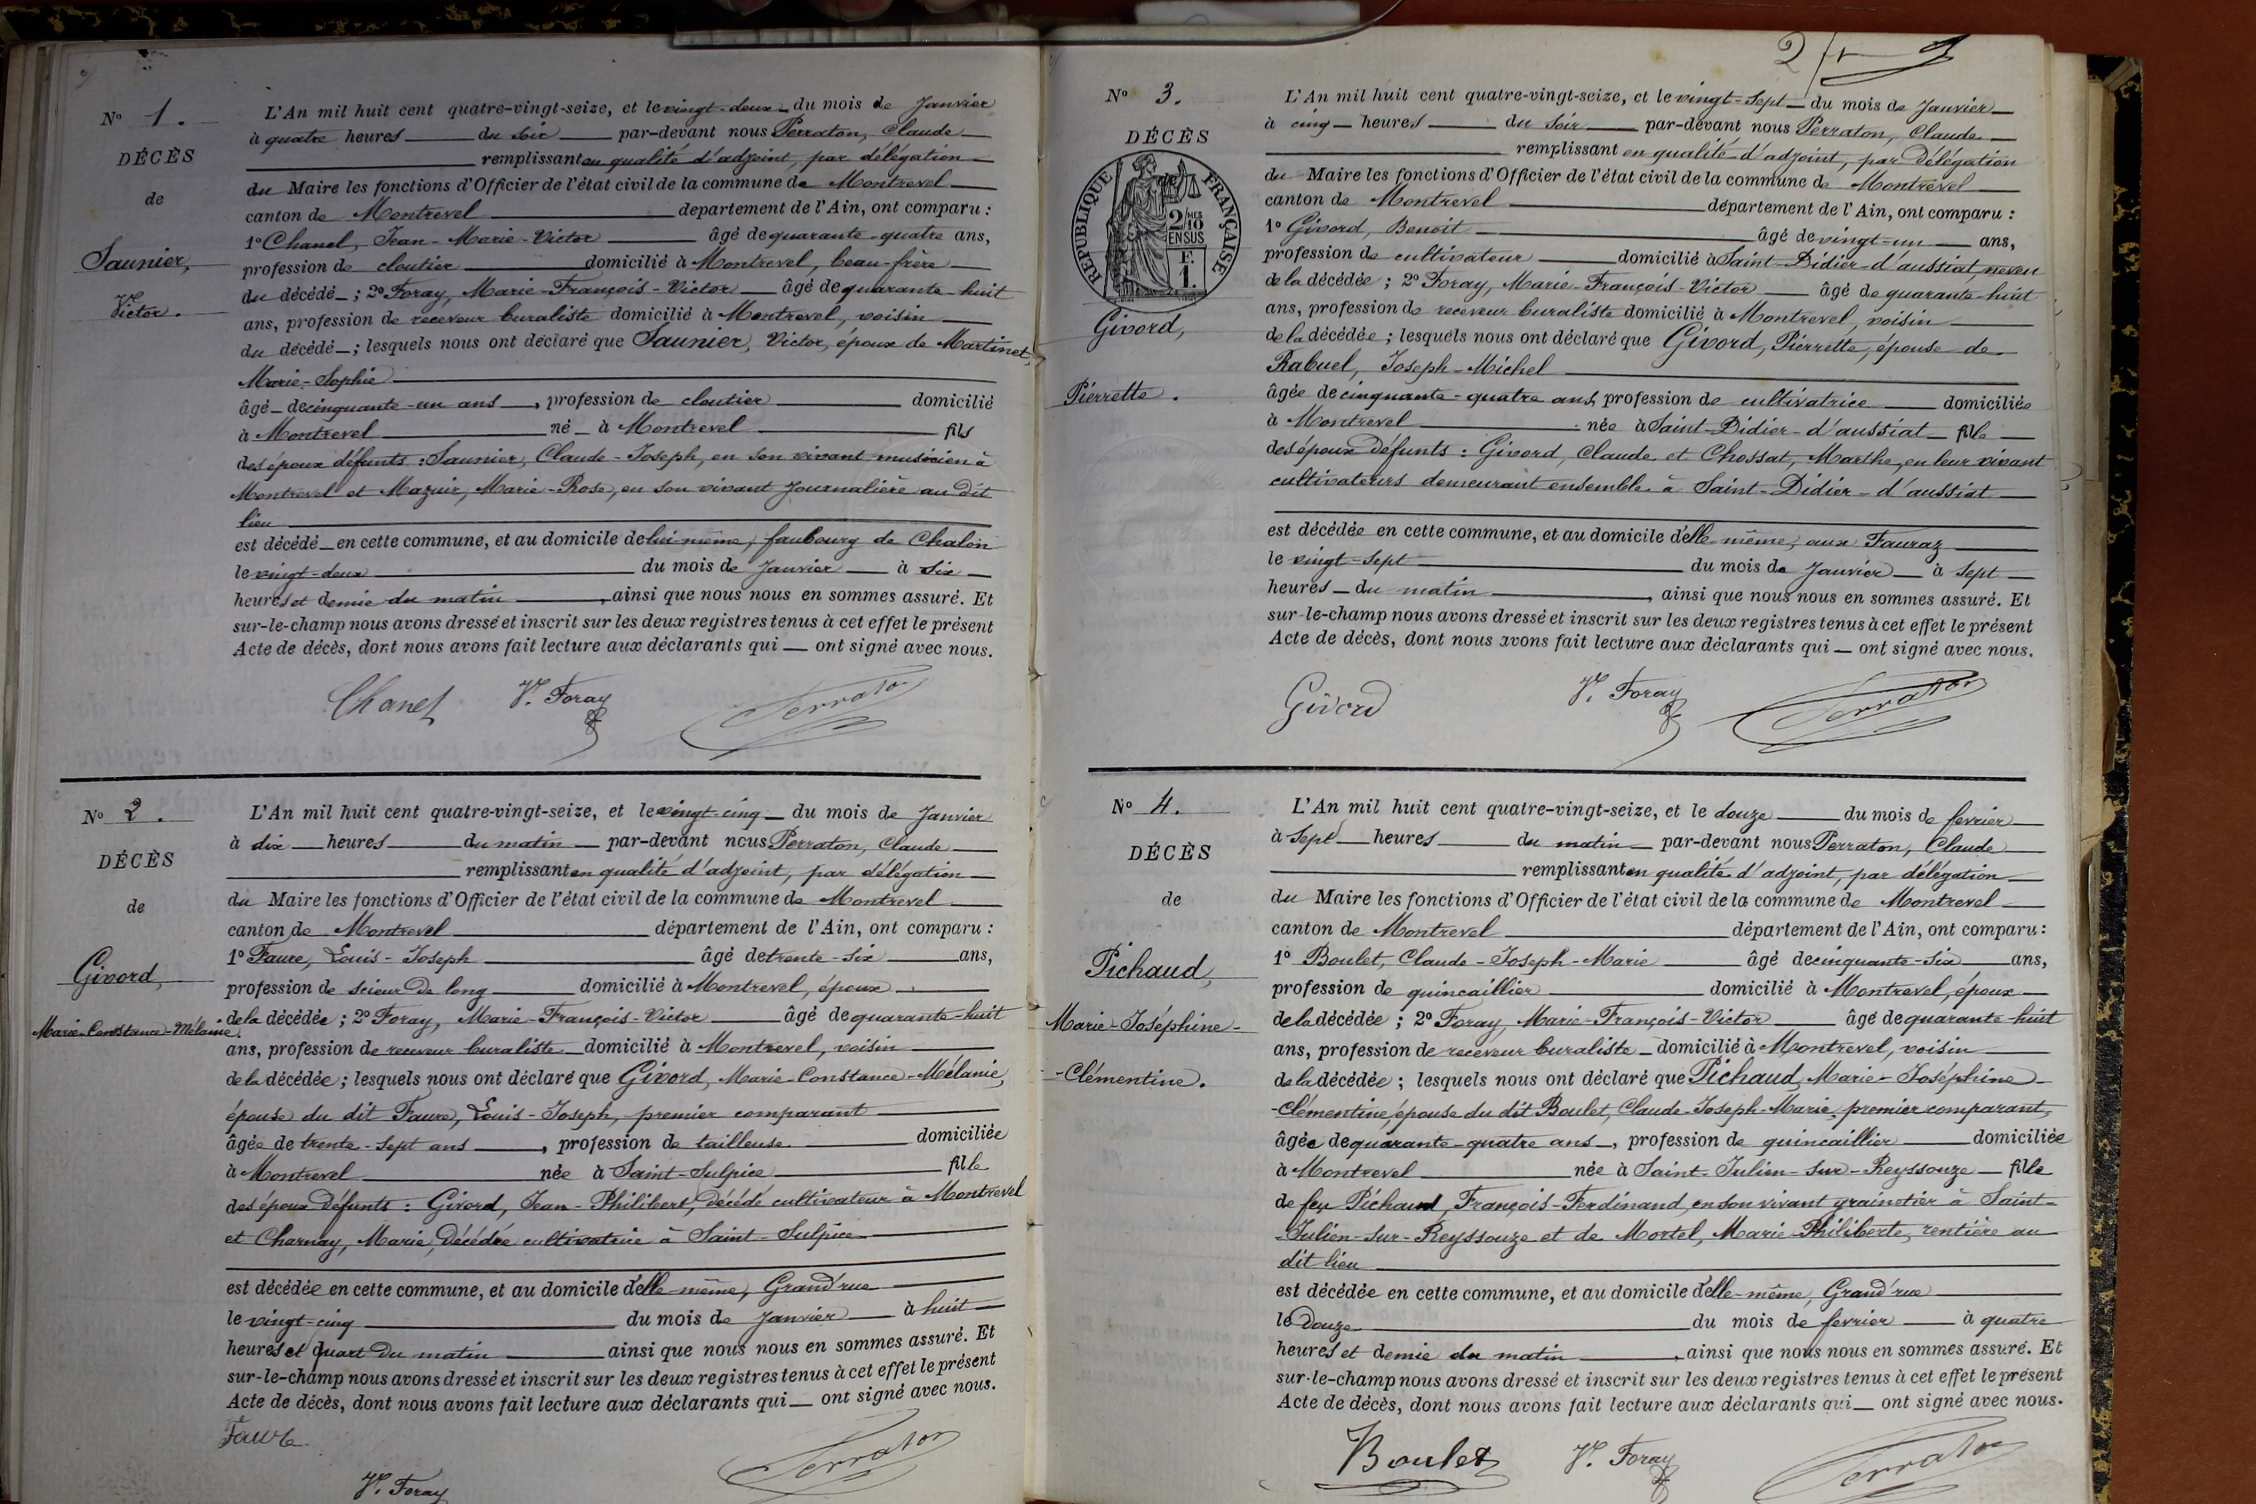 N° 1.
DÉCÈS
de
Saunier,
Victor.
L'An mil huit cent quatre-vingt-seize, et le vingt-deux du mois de Janvier
à quatre heures du soir par-devant nous Perraton, Claude
remplissant en qualité d'adjoint, par délégation
du Maire les fonctions d'Officier de l'état civil de la commune de Montrevel
canton de Montrevel département de l'Ain, ont comparu :
1° Chanel, Jean-Marie-Victor âgé de quarante-quatre ans,
profession de cloutier domicilié à Montrevel, beau-frère
du décédé ; 2° Foray, Marie-François-Victor âgé de quarante-huit
ans, profession de receveur buraliste domicilié à Montrevel, voisin
du décédé ; lesquels nous ont déclaré que Saunier, Victor, époux de Martinet,
Marie-Sophie
âgé de cinquante-un ans, profession de cloutier domicilié
à Montrevel né à Montrevel fils
des époux défunts : Saunier, Claude-Joseph, en son vivant musicien à
Montrevel et Mazuir, Marie-Rose, en son vivant journalière au dit
lieu
est décédé en cette commune, et au domicile de lui-même, faubourg de Chalon
le vingt-deux du mois de Janvier à six
heures et demie du matin, ainsi que nous nous en sommes assuré. Et
sur-le-champ nous avons dressé et inscrit sur les deux registres tenus à cet effet le présent
Acte de décès, dont nous avons fait lecture aux déclarants qui ont signé avec nous.
Chanel Vr. Foray Perraton
N° 2.
DÉCÈS
de
Givord,
Marie-Constance-Mélanie.
L'An mil huit cent quatre-vingt-seize, et le vingt-cinq du mois de Janvier
à dix heures du matin par-devant nous Perraton, Claude
remplissant en qualité d'adjoint, par délégation
du Maire les fonctions d'Officier de l'état civil de la commune de Montrevel
canton de Montrevel département de l'Ain, ont comparu :
1° Faure, Louis-Joseph âgé de trente-six ans,
profession de scieur de long domicilié à Montrevel, époux
de la décédée ; 2° Foray, Marie-François-Victor âgé de quarante-huit
ans, profession de receveur buraliste domicilié à Montrevel, voisin
de la décédée ; lesquels nous ont déclaré que Givord, Marie-Constance-Mélanie,
épouse du dit Faure, Louis-Joseph, premier comparant
âgée de trente-sept ans, profession de tailleuse domiciliée
à Montrevel née à Saint-Sulpice fille
des époux défunts : Givord, Jean-Philibert, décédé cultivateur à Montrevel
et Charnay, Marie, décédée cultivatrice à Saint-Sulpice
est décédée en cette commune, et au domicile d'elle-même, Grand'rue
le vingt-cinq du mois de Janvier à huit
heures et quart du matin ainsi que nous nous en sommes assuré. Et
sur-le-champ nous avons dressé et inscrit sur les deux registres tenus à cet effet le présent
Acte de décès, dont nous avons fait lecture aux déclarants qui ont signé avec nous.
Faure
Vr. Foray Perraton
2
N° 3.
DÉCÈS
RÉPUBLIQUE FRANÇAISE
2/10 MES
EN SUS
F.
1.
Givord,
Pierrette.
L'An mil huit cent quatre-vingt-seize, et le vingt-sept du mois de Janvier
à cinq heures du soir par-devant nous Perraton, Claude
remplissant en qualité d'adjoint, par délégation
du Maire les fonctions d'Officier de l'état civil de la commune de Montrevel
canton de Montrevel département de l'Ain, ont comparu :
1° Givord, Benoit âgé de vingt-un ans,
profession de cultivateur domicilié à Saint-Didier-d'aussiat, neveu
de la décédée ; 2° Foray, Marie-François-Victor âgé de quarante-huit
ans, profession de receveur buraliste domicilié à Montrevel, voisin
de la décédée ; lesquels nous ont déclaré que Givord, Pierrette, épouse de
Rabuel, Joseph-Michel
âgée de cinquante-quatre ans, profession de cultivatrice domiciliée
à Montrevel née à Saint-Didier-d'aussiat fille
des époux défunts : Givord, Claude et Chossat, Marthe, en leur vivant
cultivateurs demeurant ensemble à Saint-Didier-d'aussiat
est décédée en cette commune, et au domicile d'elle-même, aux Fauraz
le vingt-sept du mois de Janvier à sept
heures du matin, ainsi que nous nous en sommes assuré. Et
sur-le-champ nous avons dressé et inscrit sur les deux registres tenus à cet effet le présent
Acte de décès, dont nous avons fait lecture aux déclarants qui ont signé avec nous.
Givord Vr. Foray Perraton
N° 4.
DÉCÈS
de
Pichaud,
Marie-Joséphine-
-Clémentine.
L'An mil huit cent quatre-vingt-seize, et le douze du mois de fevrier
à sept heures du matin par-devant nous Perraton, Claude
remplissant en qualité d'adjoint, par délégation
du Maire les fonctions d'Officier de l'état civil de la commune de Montrevel
canton de Montrevel département de l'Ain, ont comparu :
1° Boulet, Claude-Joseph-Marie âgé de cinquante-six ans,
profession de quincaillier domicilié à Montrevel, époux
de la décédée ; 2° Foray, Marie-François-Victor âgé de quarante-huit
ans, profession de receveur buraliste domicilié à Montrevel, voisin
de la décédée ; lesquels nous ont déclaré que Pichaud, Marie-Joséphine-
-Clémentine, épouse du dit Boulet, Claude-Joseph-Marie, premier comparant,
âgée de quarante-quatre ans, profession de quincaillier domiciliée
à Montrevel née à Saint-Julien-sur-Reyssouze fille
de feu Pichaud, François-Ferdinand, en son vivant grainetier à Saint-
-Julien-sur-Reyssouze et de Mortel, Marie-Philiberte, rentière au
dit lieu
est décédée en cette commune, et au domicile d'elle-même, Grand'rue
le douze du mois de fevrier à quatre
heures et demie du matin, ainsi que nous nous en sommes assuré. Et
sur-le-champ nous avons dressé et inscrit sur les deux registres tenus à cet effet le présent
Acte de décès, dont nous avons fait lecture aux déclarants qui ont signé avec nous.
Boulet Vr. Foray Perraton